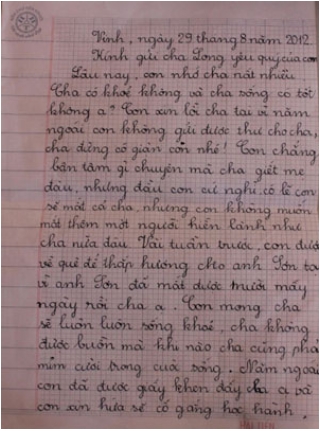 Vinh, ngày 29 tháng 8 năm 2012
Kính gửi cha Long yêu quý của con
Lâu nay, con nhớ cha rất nhiều
Cha có khoẻ không và cha sống có tốt
không ạ? Con xin lỗi cha tại vì năm
ngoái con không gửi được thư cho cha,
cha đừng có giận con nhé! Con chẳng
bận tâm gì chuyện mà cha giết mẹ
đâu, nhưng dẫu con cứ nghĩ, có lẽ con
sẽ mất cả cha, nhưng con không muốn
mất thêm một người hiền lành như
cha nữa đâu. Vài tuần trước, con được
về quê để thắp hương cho anh Sơn tại
vì anh Sơn đã mất được mười mấy
ngày rồi cha ạ. Con mong cha
sẽ luôn luôn sống khoẻ, cha không
được buồn mà khi nào cha cũng phải
mỉm cười trong cuộc sống. Năm ngoái
con đã được giấy khen đấy cha ạ và
con xin hứa sẽ cố gắng học hành,